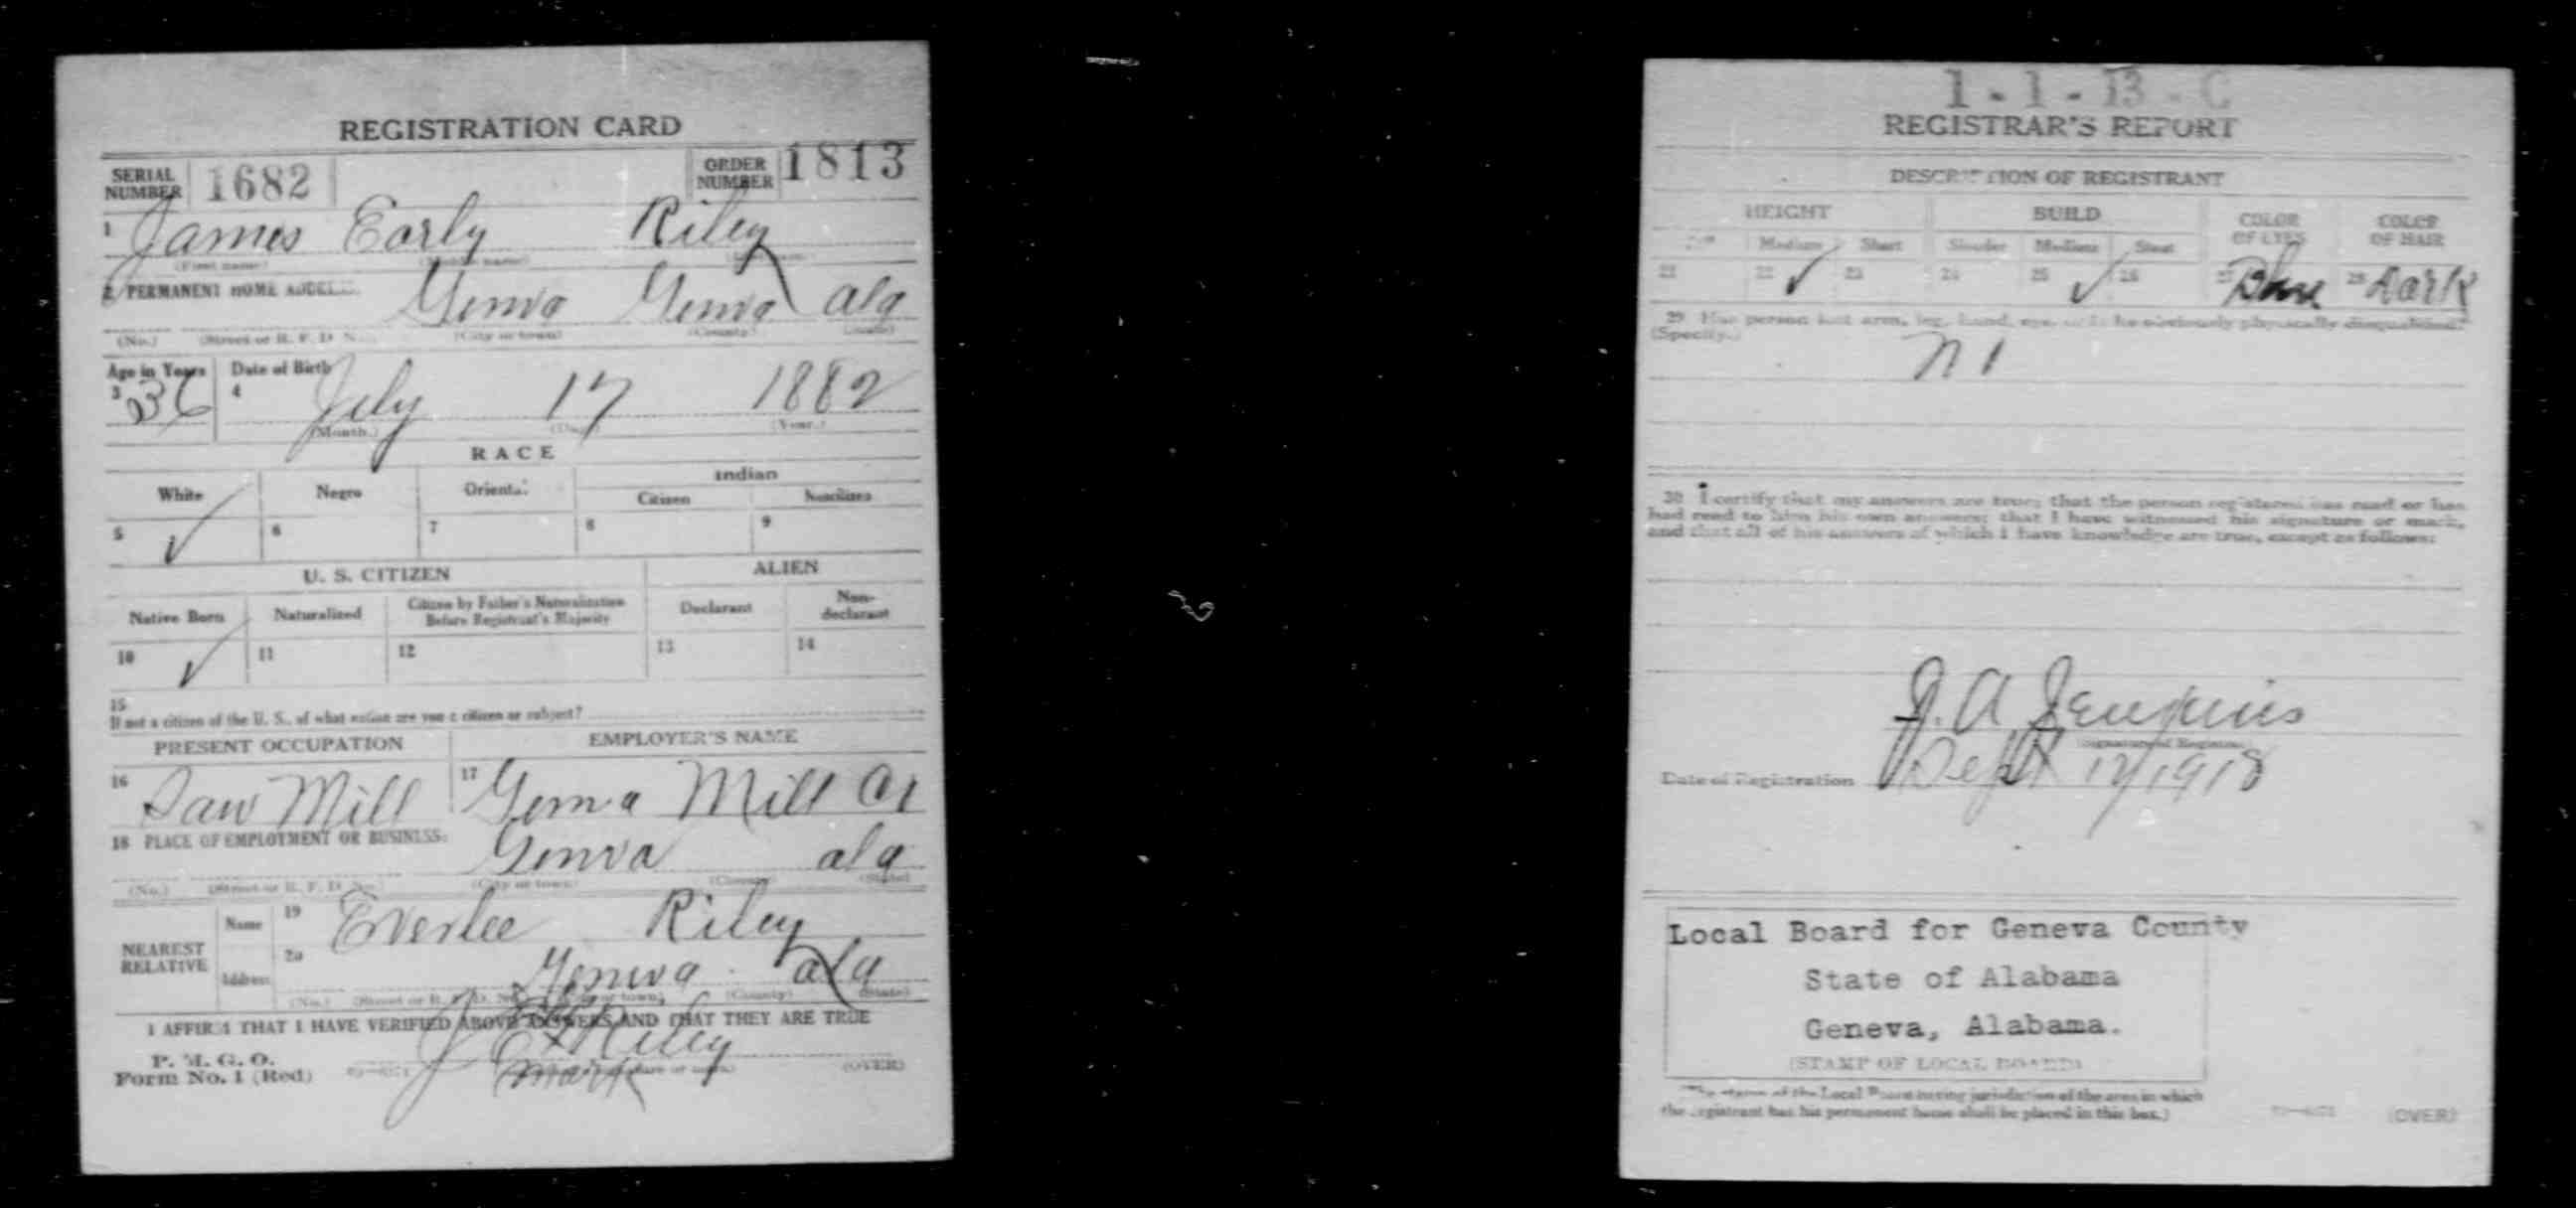 REGISTRATION CARD
SERIAL NUMBER 1682 ORDER NUMBER 1813
1 James Early Riley
(First name) (Middle name)
2 PERMANENT HOME ADDRESS: Geneva Geneva Ala
(No.) (Street or R. F. D. No.) (City or town) (County) (State)
Age in Years Date of Birth
3 36 4 July 17 1882
(Month.) (Day.) (Year.)
RACE
White Negro Oriental Indian
Citizen Noncitizen
5 ✓ 6 7 8 9
U. S. CITIZEN ALIEN
Native Born Naturalized Citizen by Father's Naturalization Before Registrant's Majority Declarant Non-declarant
10 ✓ 11 12 13 14
15
If not a citizen of the U. S., of what nation are you a citizen or subject?
PRESENT OCCUPATION EMPLOYER'S NAME
16 Saw Mill 17 Geneva Mill Co
18 PLACE OF EMPLOYMENT OR BUSINESS:
Geneva Ala
(No.) (Street or R. F. D. No.) (City or town) (County) (State)
NEAREST RELATIVE Name 19 Everlee Riley
Address 20 Geneva Ala
(No.) (Street or R. F. D. No.) (City or town) (County) (State)
I AFFIRM THAT I HAVE VERIFIED ABOVE ANSWERS AND THAT THEY ARE TRUE
P. M. G. O.
Form No. 1 (Red) J E X Riley (OVER)
mark
1-1-13-C
REGISTRAR'S REPORT
DESCRIPTION OF REGISTRANT
HEIGHT BUILD COLOR OF EYES COLOR OF HAIR
Medium Short Slender Medium Stout
21 22 ✓ 23 24 25 ✓ 26 27 Blue 28 Dark
29 Has person lost arm, leg, hand, eye, or is he obviously physically disqualified?
(Specify.)
no
30 I certify that my answers are true; that the person registered has read or has
had read to him his own answers; that I have witnessed his signature or mark,
and that all of his answers of which I have knowledge are true, except as follows:
J. A Jenkins
(Signature of Registrar)
Date of Registration Sept 12/1918
Local Board for Geneva County
State of Alabama
Geneva, Alabama.
(STAMP OF LOCAL BOARD)
(The stamp of the Local Board having jurisdiction of the area in which
the registrant has his permanent home shall be placed in this box.)
(OVER)